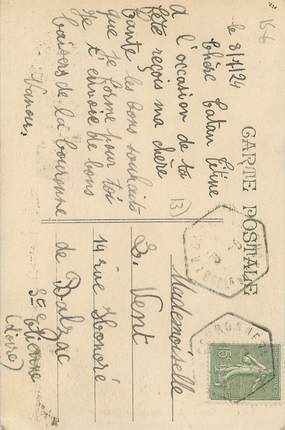 CARTE POSTALE
le 8/1/24
Chère tatan Titine
à l'occasion de ta
fête reçois ma chère
tante les bons souhaits
que je forme pour toi
Je t'envoie de bons
baisers de la
Vanou
(3)
Mademoiselle
B. Vent
14 rue Honoré
de Balzac
St Etienne
(Loire)
15